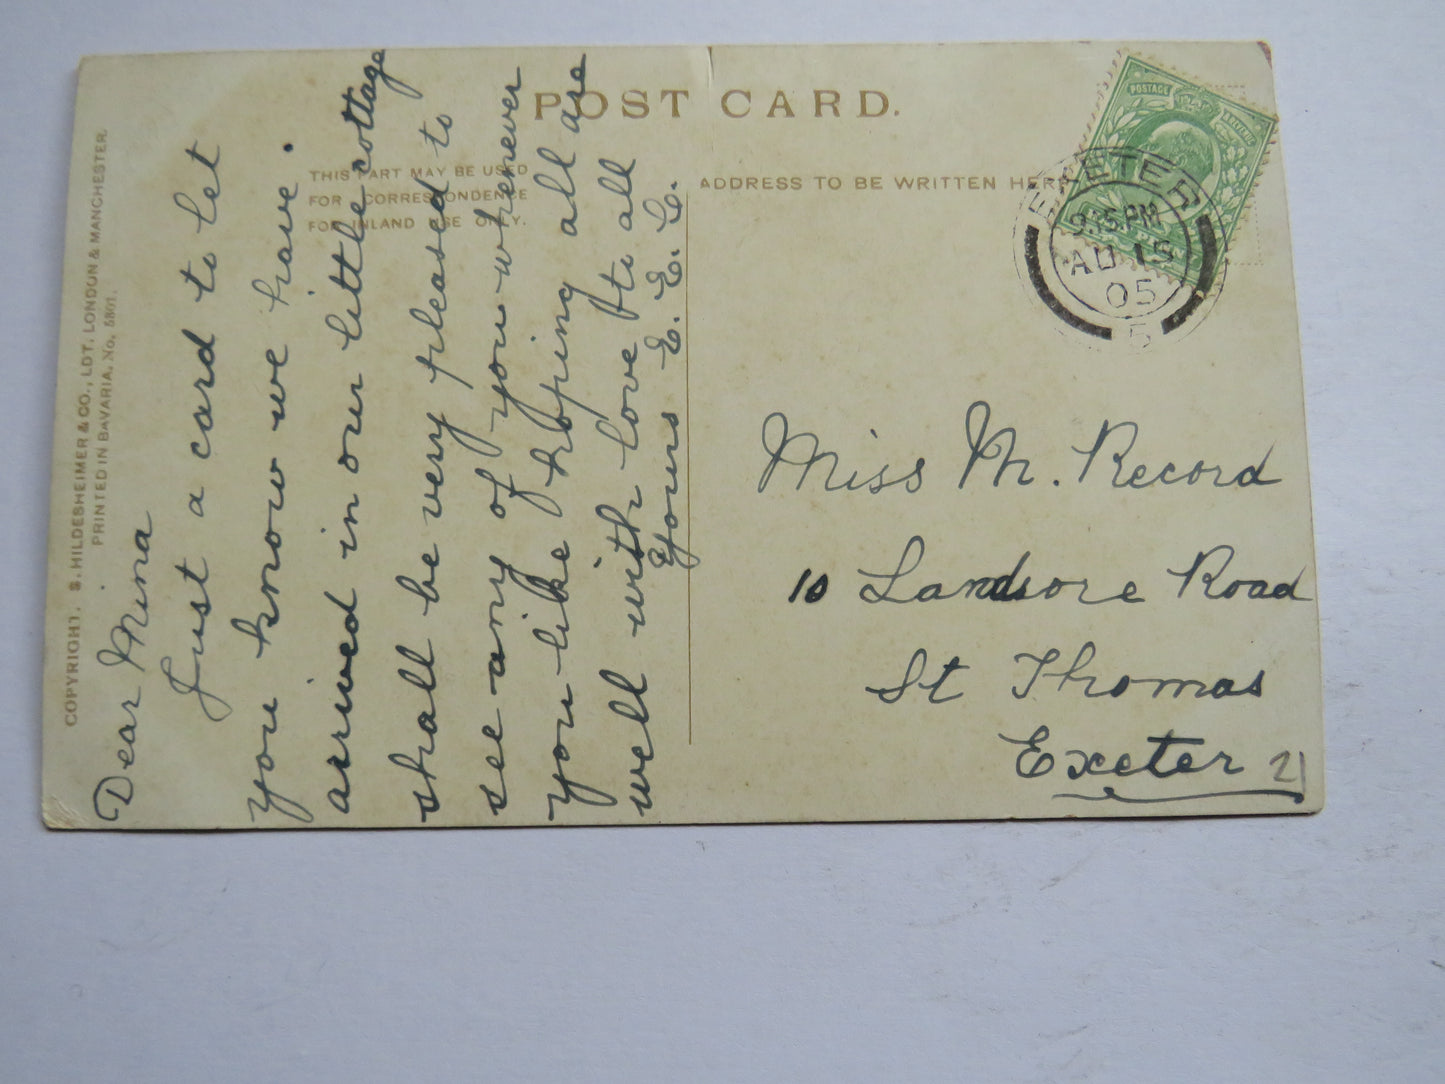 POST CARD.
THIS PART MAY BE USED
FOR CORRESPONDENCE
FOR INLAND USE ONLY.
ADDRESS TO BE WRITTEN HERE
COPYRIGHT. S. HILDESHEIMER & CO., LDT. LONDON & MANCHESTER.
PRINTED IN BAVARIA. No. 5301.
Dear Mina
Just a card to let
you know we have
arrived in our little cottage
shall be very pleased to
see any of you whenever
you like hoping all are
well with love to all
Yours E. E. E. C.
POSTAGE
EXETER
9.15 PM
AU 15
05
5
Miss M. Record
10 Landsore Road
St Thomas
Exeter
21